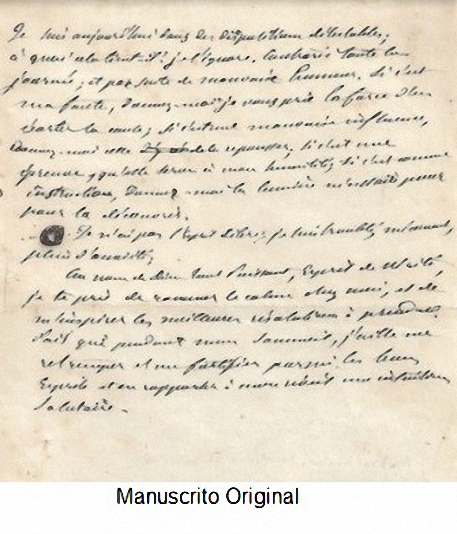 Je suis aujourd'hui dans des dispositions détestables,
à quoi cela tient-il? je l'ignore. toute la
journée; et par suite de mauvaise humeur. Si c'est
ma faute, donnez-moi je vous prie la force d'en
écarter la cause; Si c'est une mauvaise influence,
donnez-moi celle de la repousser, si c'est une
épreuve, qu'elle serve à mon humilité; si c'est comme
instruction, donnez-moi la lumière nécessaire pour
pour la découvrir.
Je n'ai pas l'esprit libre; je suis troublé, mécontent,
plein d'anxiété;
Au nom de dieu tout Puissant, Esprit de Vérité,
je te prie de ramener le calme chez moi, et de
m'inspirer les meilleures résolutions à prendre.
Fais que pendant mon sommeil, j'aille me
retremper et me fortifier parmi les bons
Esprits et en rapporter à mon réveil une intuition
salutaire.
Manuscrito Original